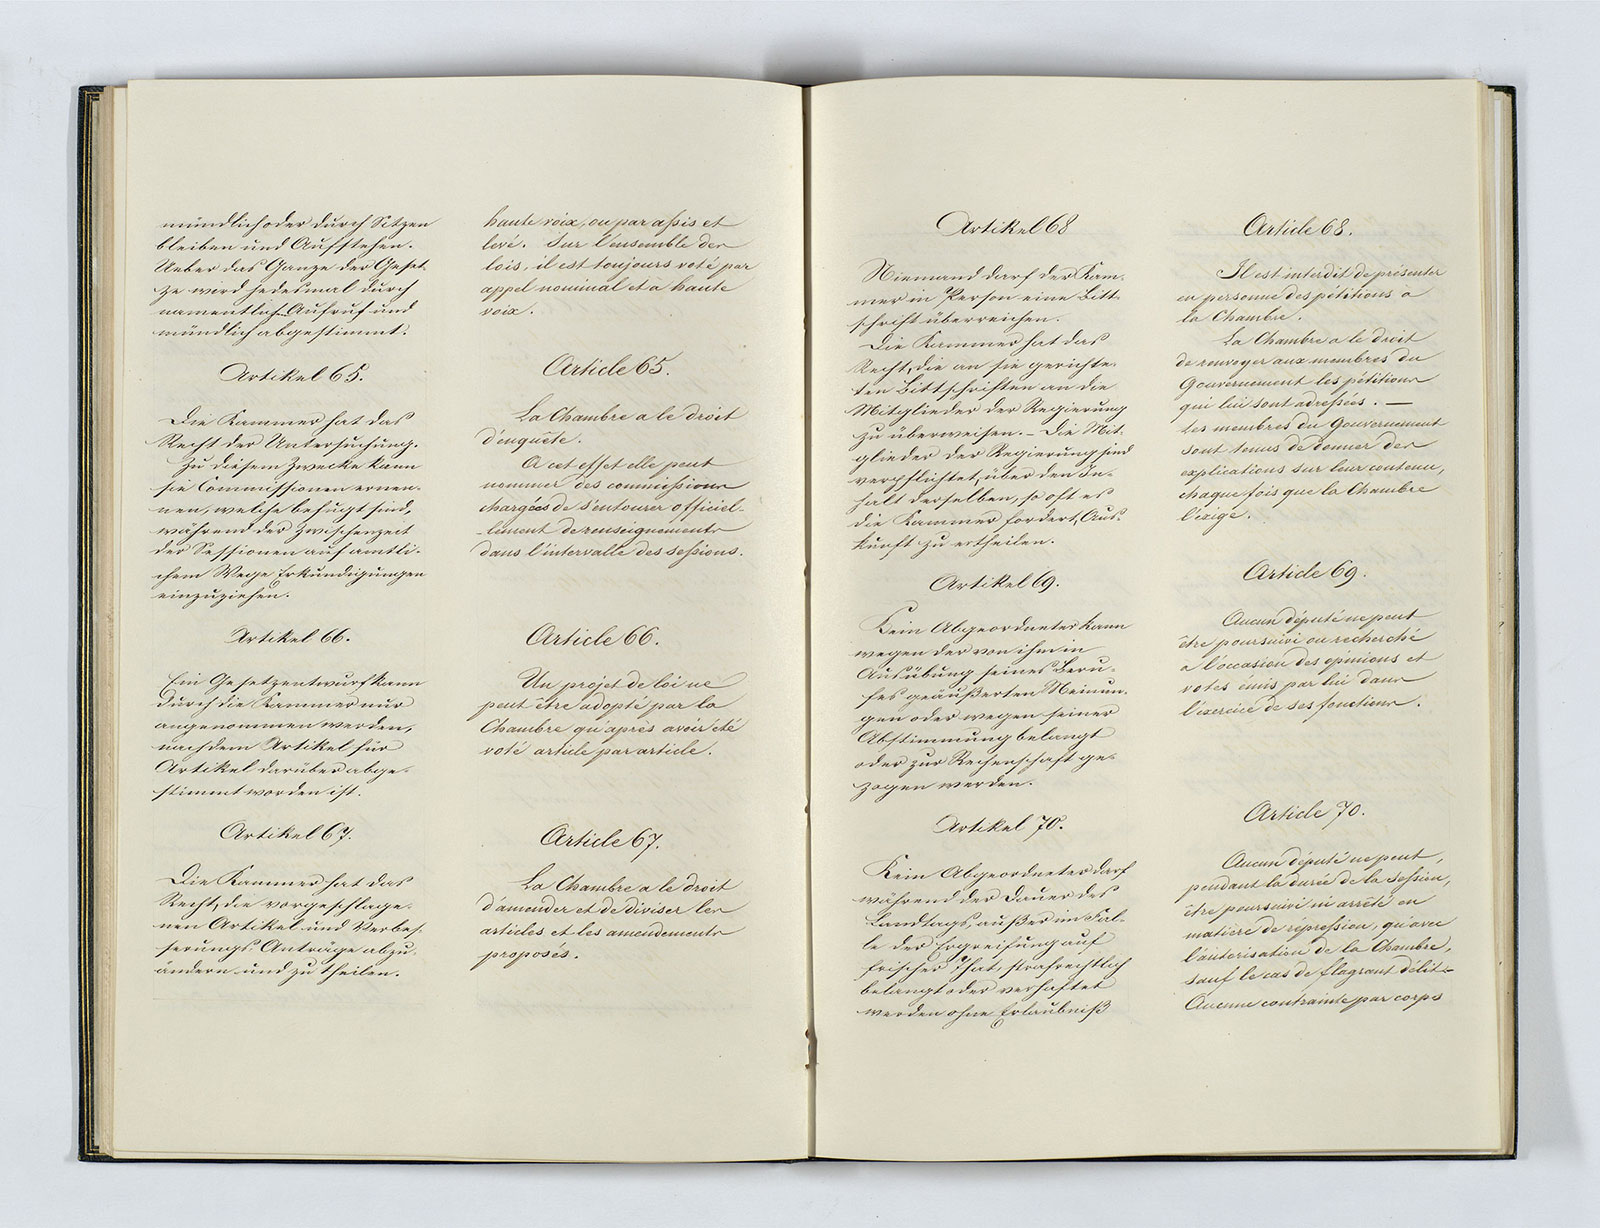 mündlich oder durch Sitzen
bleiben und Aufstehen.
Ueber das Ganze der Geset-
ze wird jedesmal durch
namentlich Aufruf und
mündlich abgestimmt.
Artikel 65.
Die Kammer hat das
Recht der Untersuchung.
Zu diesem Zwecke kann
sie Commissionen ernen-
nen, welche befugt sind,
während der Zwischenzeit
der Sessionen auf amtli-
chem Wege Erkundigungen
einzuziehen.
Artikel 66.
Ein Gesetzentwurf kann
durch die Kammer nur
angenommen werden,
nachdem Artikel für
Artikel darüber abge-
stimmt worden ist.
Artikel 67.
Die Kammer hat das
Recht, die vorgeschlage-
nen Artikel und Verbes-
serungs-Anträge abzu-
ändern und zu theilen.
haute voix, ou par assis et
levé. Sur l'ensemble des
lois, il est toujours voté par
appel nominal et a haute
voix.
Article 65.
La Chambre a le droit
d'enquête.
A cet effet elle peut
nommer des commissions
chargées de s'entourer officiel-
lement de renseignements
dans l'intervalle des sessions.
Article 66.
Un projet de loi ne
peut être adopté par la
Chambre qu'après avoir été
voté article par article.
Article 67.
La Chambre a le droit
d'amender et de diviser les
articles et les amendements
proposés.
Artikel 68
Niemand darf der Kam-
mer in Person eine Bitt-
schrift überreichen.
Die Kammer hat das
Recht, die an sie gerichte-
ten Bittschriften an die
Mitglieder der Regierung
zu überweisen. – Die Mit-
glieder der Regierung sind
verpflichtet, über den In-
halt derselben, so oft es
die Kammer fordert, Aus-
kunft zu ertheilen.
Artikel 69.
Kein Abgeordneter kann
wegen der von ihm in
Ausübung seines Beru-
fes geäußerten Meinun-
gen oder wegen seiner
Abstimmung belangt
oder zur Rechenschaft ge-
zogen werden.
Artikel 70.
Kein Abgeordneter darf
während der Dauer des
Landtags, außer im Fal-
le der Ergreifung auf
frischer That, strafrechtlich
belangt oder verhaftet
werden ohne Erlaubniß
Article 68.
Il est interdit de présenter
en personne des pétitions a
la Chambre.
La Chambre a le droit
de renvoyer aux membres du
Gouvernement les pétitions
qui lui sont adressées. —
Les membres du Gouvernement
sont tenus de donner des
explications sur leur contenu,
chaque fois que la Chambre
l'exige.
Article 69.
Aucun député ne peut
être poursuivi ou recherché
a l'occasion des opinions et
votes émis par lui dans
l'exercice de ses fonctions.
Article 70.
Aucun député ne peut,
pendant la durée de la session,
être poursuivi ni arrêté en
matière de répression, qu'avec
l'autorisation de la Chambre,
sauf le cas de flagrant délit–
Aucune contrainte par corps